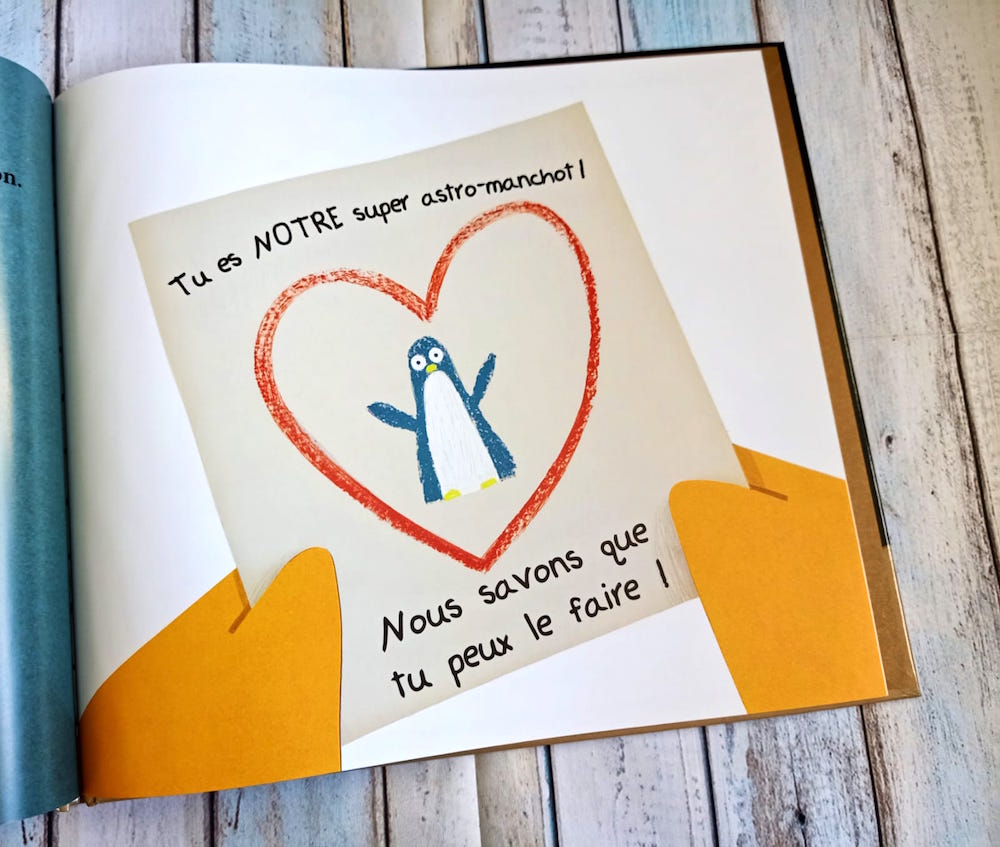 Tu es NOTRE super astro-manchot!
Nous savons que
tu peux le faire !